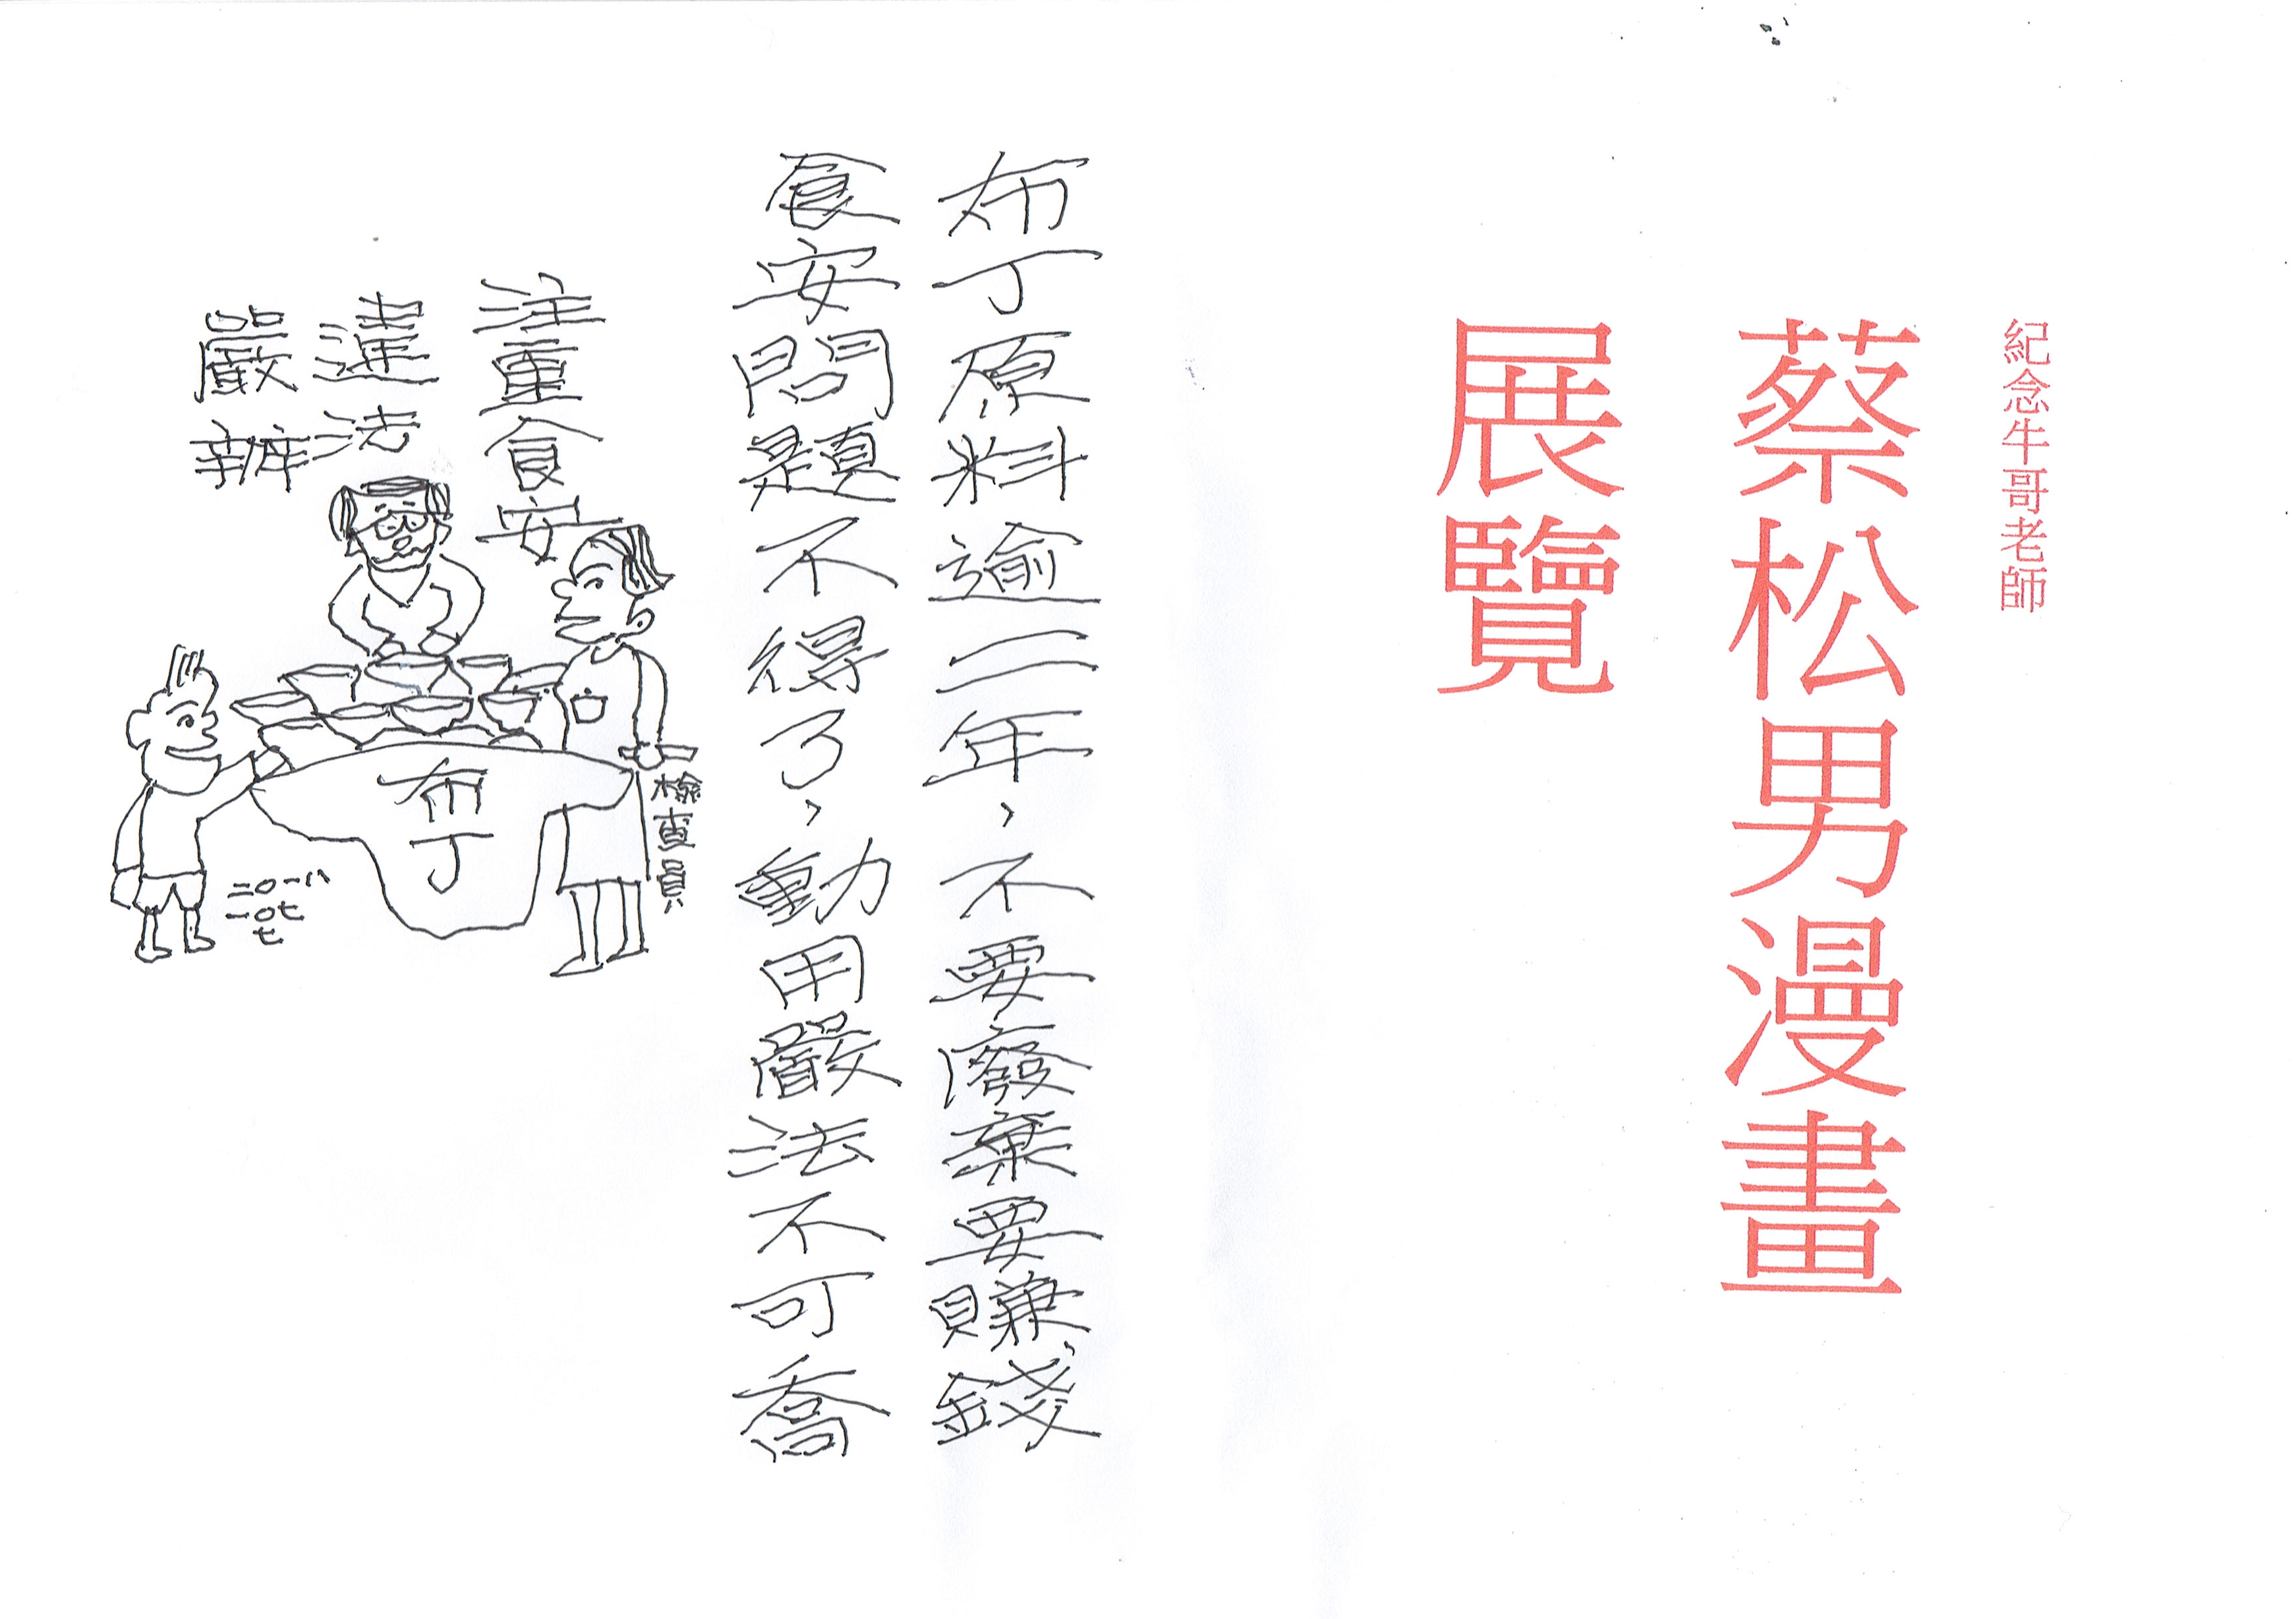 紀念牛哥老師
蔡松男漫畫
展覽
布丁原料逾二年，不要廢棄要賺錢
食安問題不得了，動用嚴法不可喬
注重食安
違法
嚴辦
檢查員
布丁
二〇一八
一〇七
七